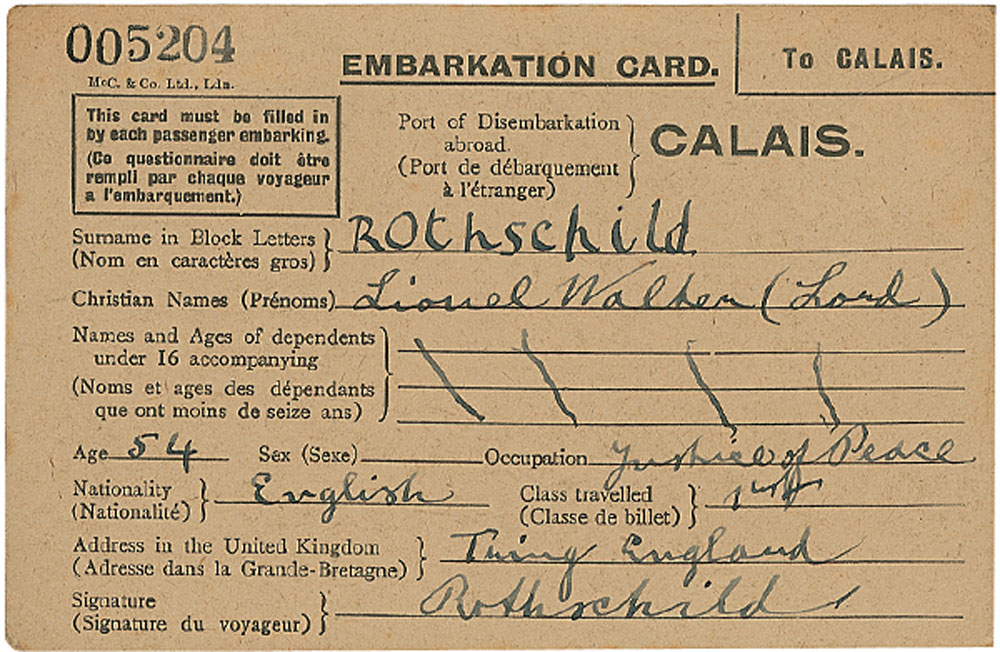 005204
McC. & Co. Ltd., Ldn.
EMBARKATION CARD.
To CALAIS.
This card must be filled in
by each passenger embarking.
(Ce questionnaire doit être
rempli par chaque voyageur
a l'embarquement.)
Port of Disembarkation
abroad.
(Port de débarquement
à l'étranger)
CALAIS.
Surname in Block Letters
(Nom en caractères gros)
ROthschild
Christian Names (Prénoms) Lionel Walter (Lord)
Names and Ages of dependents
under 16 accompanying
(Noms et ages des dépendants
que ont moins de seize ans)
Age 54 Sex (Sexe) Occupation Justice of Peace
Nationality
(Nationalité)
English
Class travelled
(Classe de billet)
1st
Address in the United Kingdom
(Adresse dans la Grande-Bretagne)
Tring England
Signature
(Signature du voyageur)
Rothschild